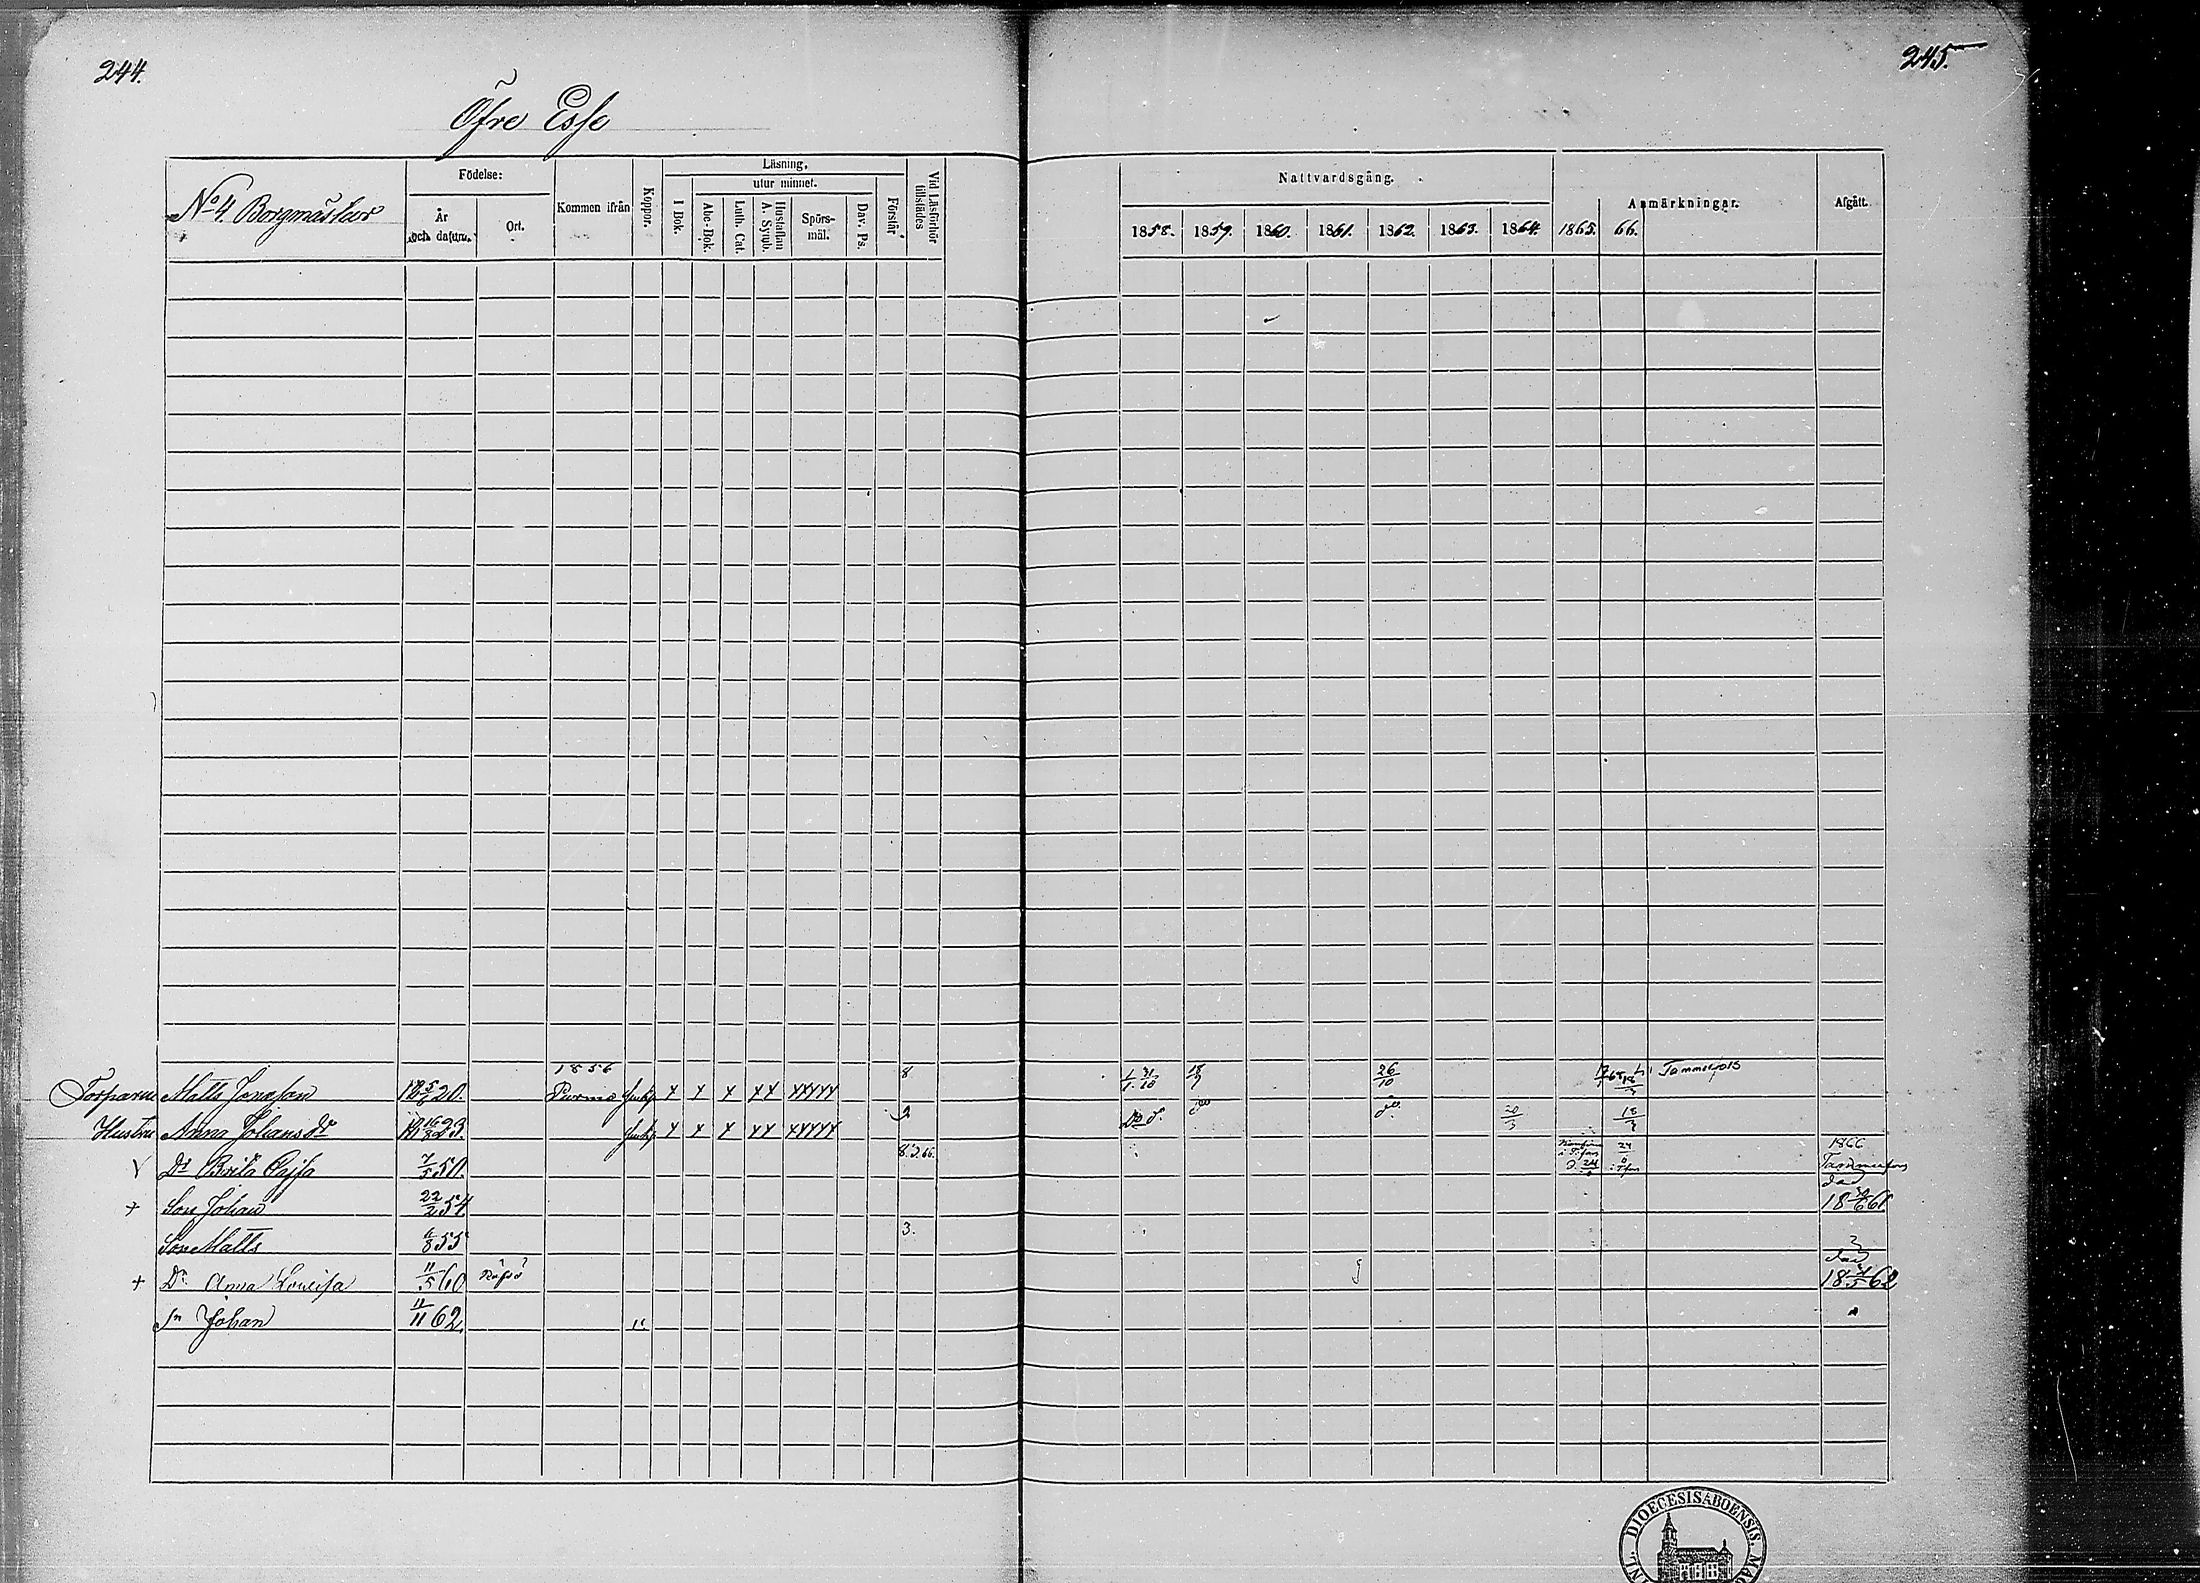 244.
245.
Öfre Esse
No 4 Borgmästar
Födelse:
År och datum.
Ort.
Kommen ifrån
Koppor.
Läsning,
utur minnet.
I Bok.
Abc-Bok.
Luth. Cat.
Hustaflan A. Symb.
Spörs-mål.
Dav. Ps.
Förstår
Vid Läsförhör tillstädes
Nattvardsgång.
1858. 1859. 1860. 1861. 1862. 1863. 1864. 1865. 66.
Anmärkningar.
Afgått.
1856 8
Torparen Matts Jonasson 18 5/2 20. Purmo x x x xx xxxxx 18/7 26/10 Tammerfors
Hustru Anna Johansdr 18 16/8 23. x x x xx xxxxx 2 do do 20/3 18/3
8.3.66. 24 1866
Dr Brita Cajsa 7/5 50. Tammerfors
död
+ Son Johan 22/2 54
Son Matts 6/8 55 3.
död
+ Dr Anna Lovisa 11/5 60 18 62
Sn Johan 11/11 62. "
DIOECESIS ABOENSIS